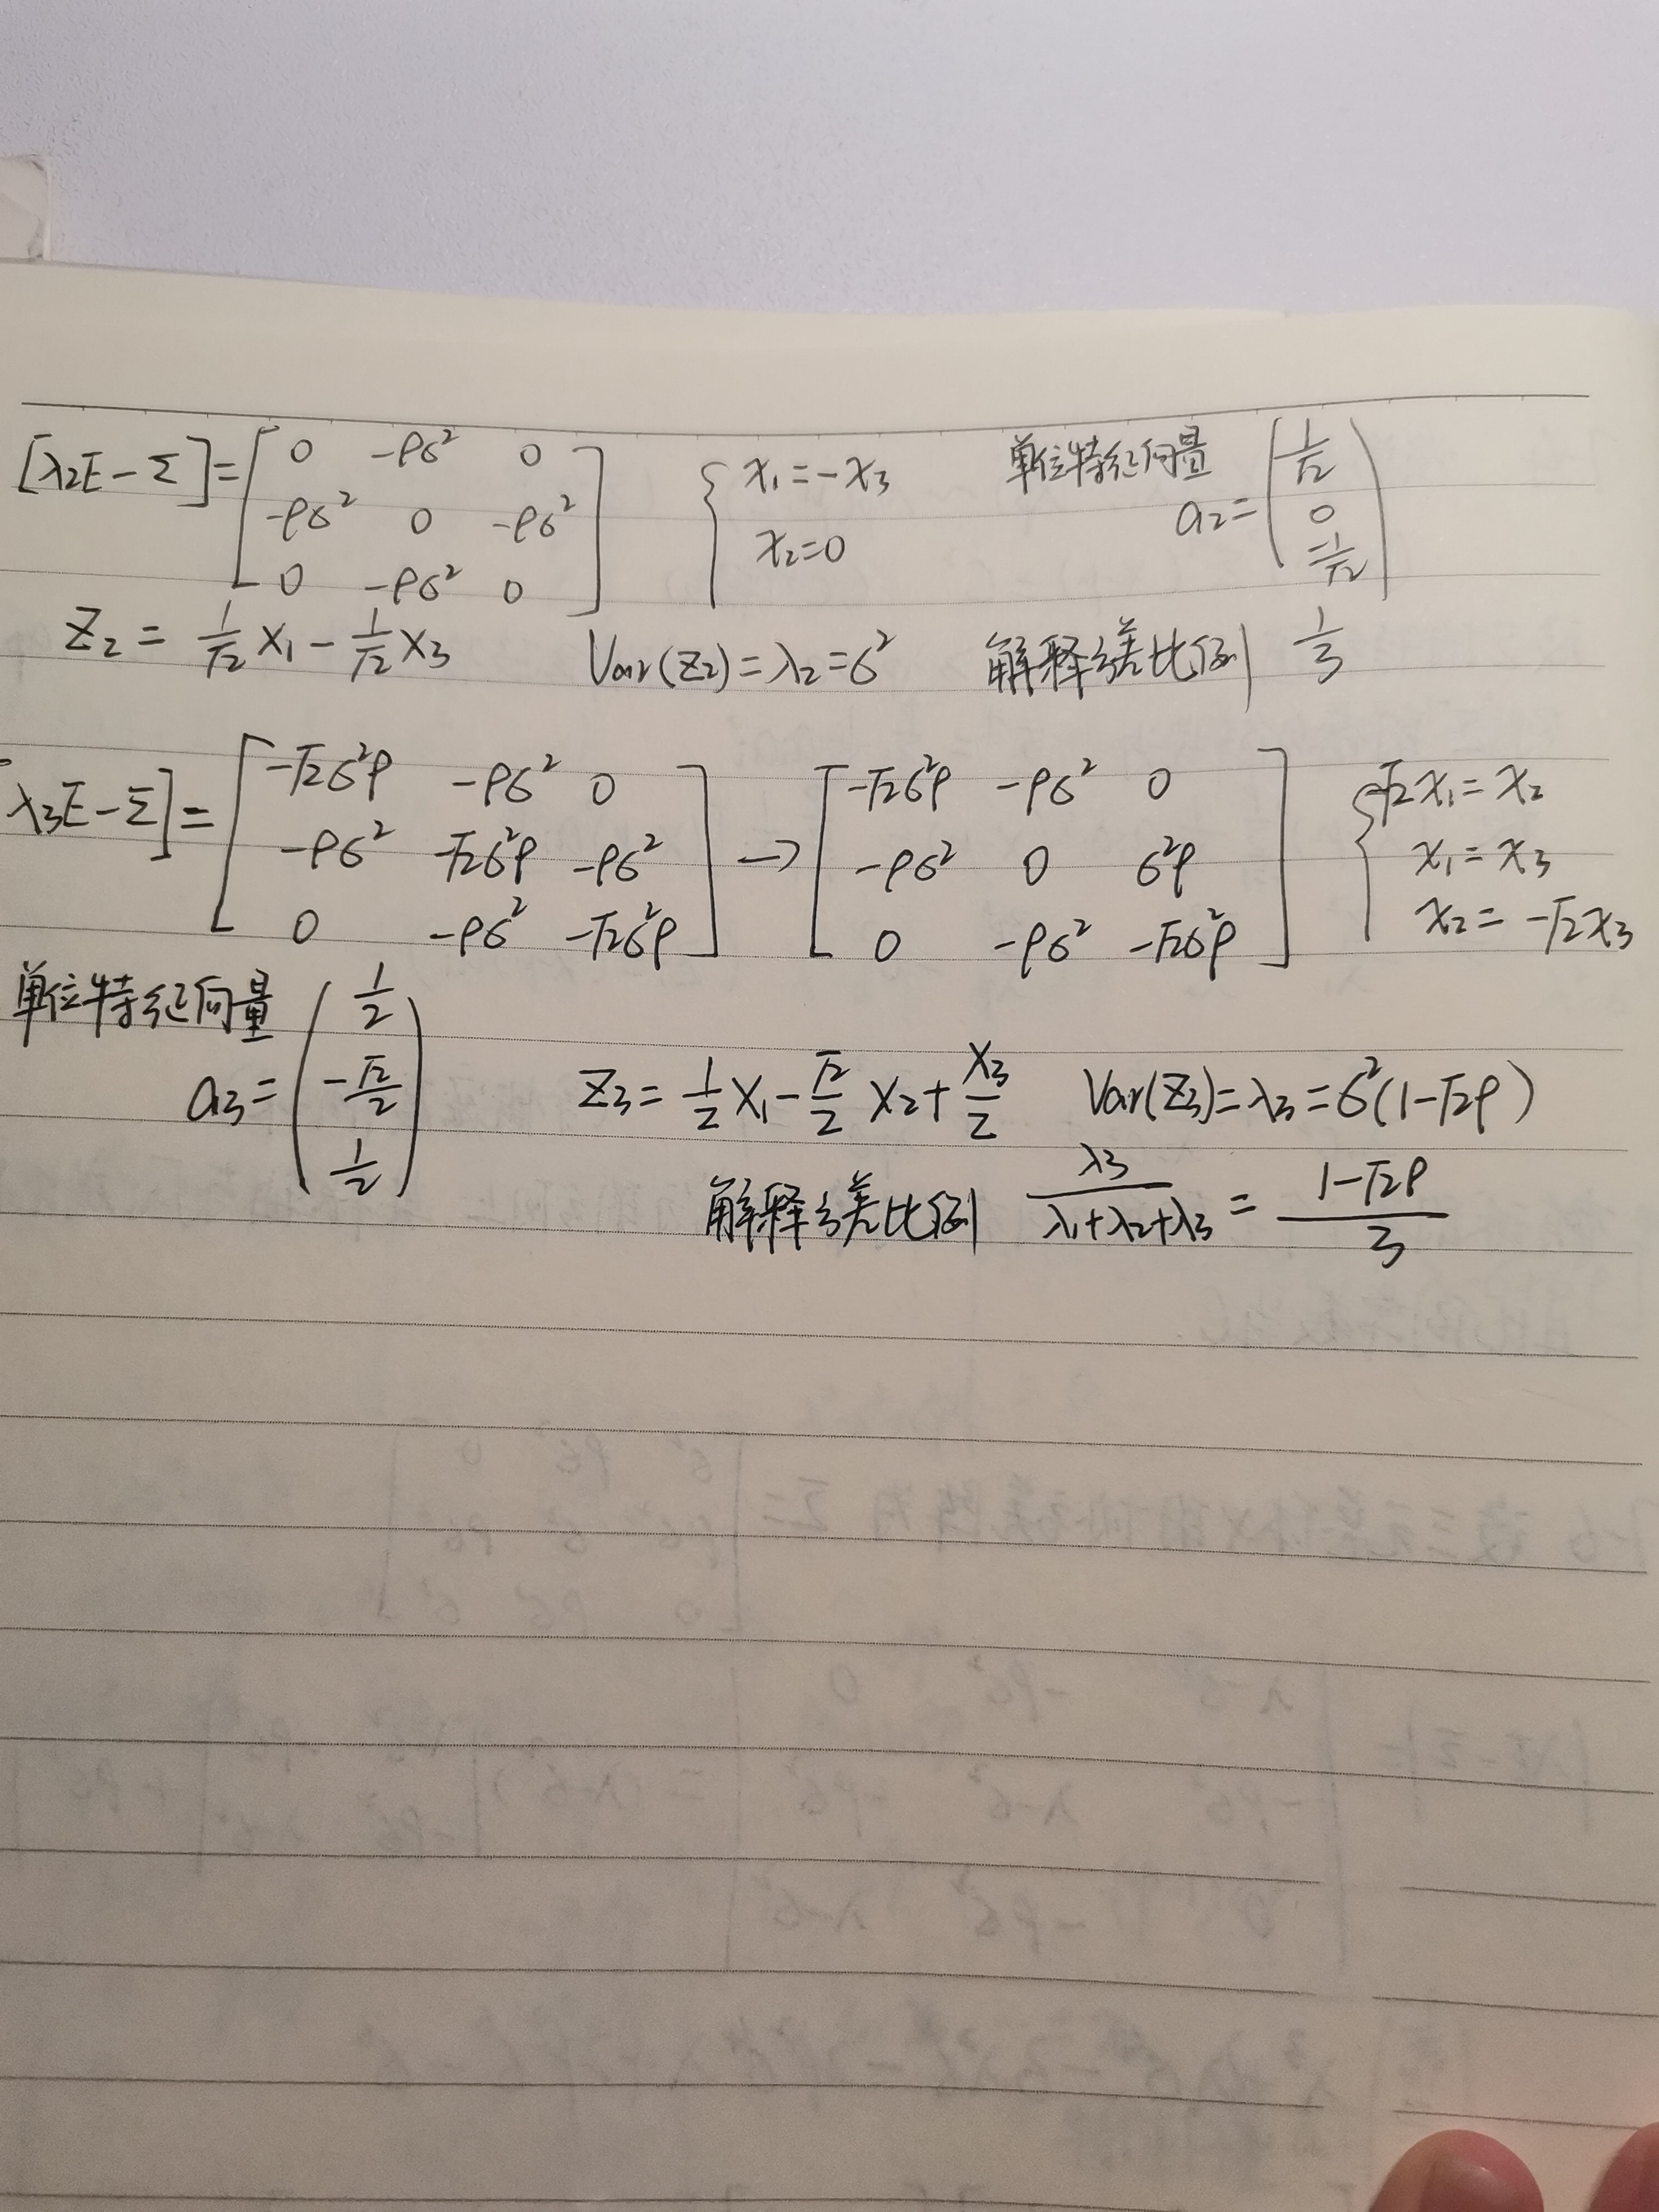 [λ₂E-Σ]=[0 -ρσ² 0; -ρσ² 0 -ρσ²; 0 -ρσ² 0] {x₁=-x₃; x₂=0 单位特征向量 a₂=(1/√2; 0; -1/√2)
Z₂ = 1/√2 X₁ - 1/√2 X₃ Var(Z₂)=λ₂=σ² 解释方差比例 1/3
[λ₃E-Σ]=[-√2σ²ρ -ρσ² 0; -ρσ² -√2σ²ρ -ρσ²; 0 -ρσ² -√2σ²ρ] → [-√2σ²ρ -ρσ² 0; -ρσ² 0 σ²ρ; 0 -ρσ² -√2σ²ρ] {-√2x₁=x₂; x₁=x₃; x₂=-√2x₃
单位特征向量
a₃=(1/2; -√2/2; 1/2) Z₃=1/2 X₁-√2/2 X₂+X₃/2 Var(Z₃)=λ₃=σ²(1-√2ρ)
解释方差比例 λ₃/(λ₁+λ₂+λ₃) = (1-√2ρ)/3